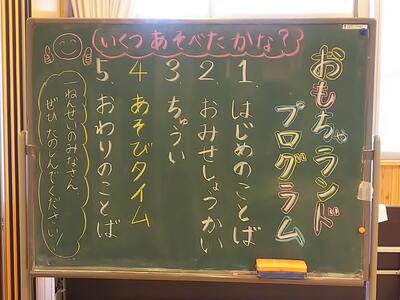 いくつあそべたかな?
おもちゃランド
プログラム
1. はじめのことば
2. おみせしょうかい
3 ちゅうい
4 あそびタイム
5. おわりのことば
ねんせいのみなさん
ぜひたのしんでください!